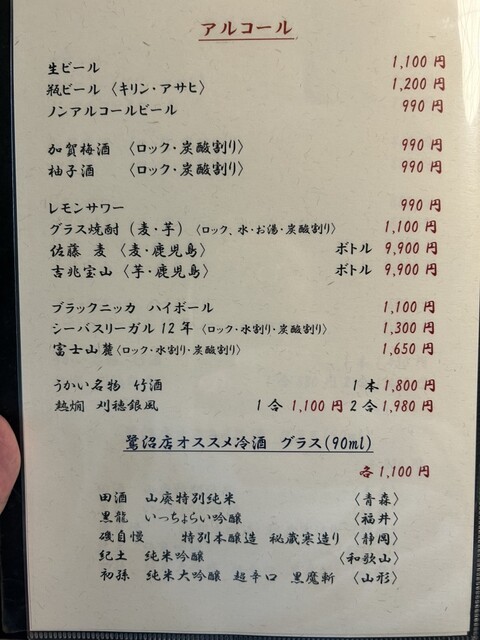 アルコール
生ビール 1,100 円
瓶ビール 〈キリン・アサヒ〉 1,200 円
ノンアルコールビール 990 円
加賀梅酒 〈ロック・炭酸割り〉 990 円
柚子酒 〈ロック・炭酸割り〉 990 円
レモンサワー 990 円
グラス焼酎(麦・芋) 〈ロック、水・お湯・炭酸割り〉 1,100 円
佐藤 麦 〈麦・鹿児島〉 ボトル 9,900 円
吉兆宝山 〈芋・鹿児島〉 ボトル 9,900 円
ブラックニッカ ハイボール 1,100 円
シーバスリーガル 12 年 〈ロック・水割り・炭酸割り〉 1,300 円
富士山麓〈ロック・水割り・炭酸割り〉 1,650 円
うかい名物 竹酒 1 本 1,800 円
熱燗 刈穂銀風 1 合 1,100 円 2 合 1,980 円
鷺沼店オススメ冷酒 グラス(90ml)
各 1,100 円
田酒 山廃特別純米 〈青森〉
黒龍 いっちょらい吟醸 〈福井〉
磯自慢 特別本醸造 秘蔵寒造り 〈静岡〉
紀土 純米吟醸 〈和歌山〉
初孫 純米大吟醸 超辛口 黒魔斬 〈山形〉